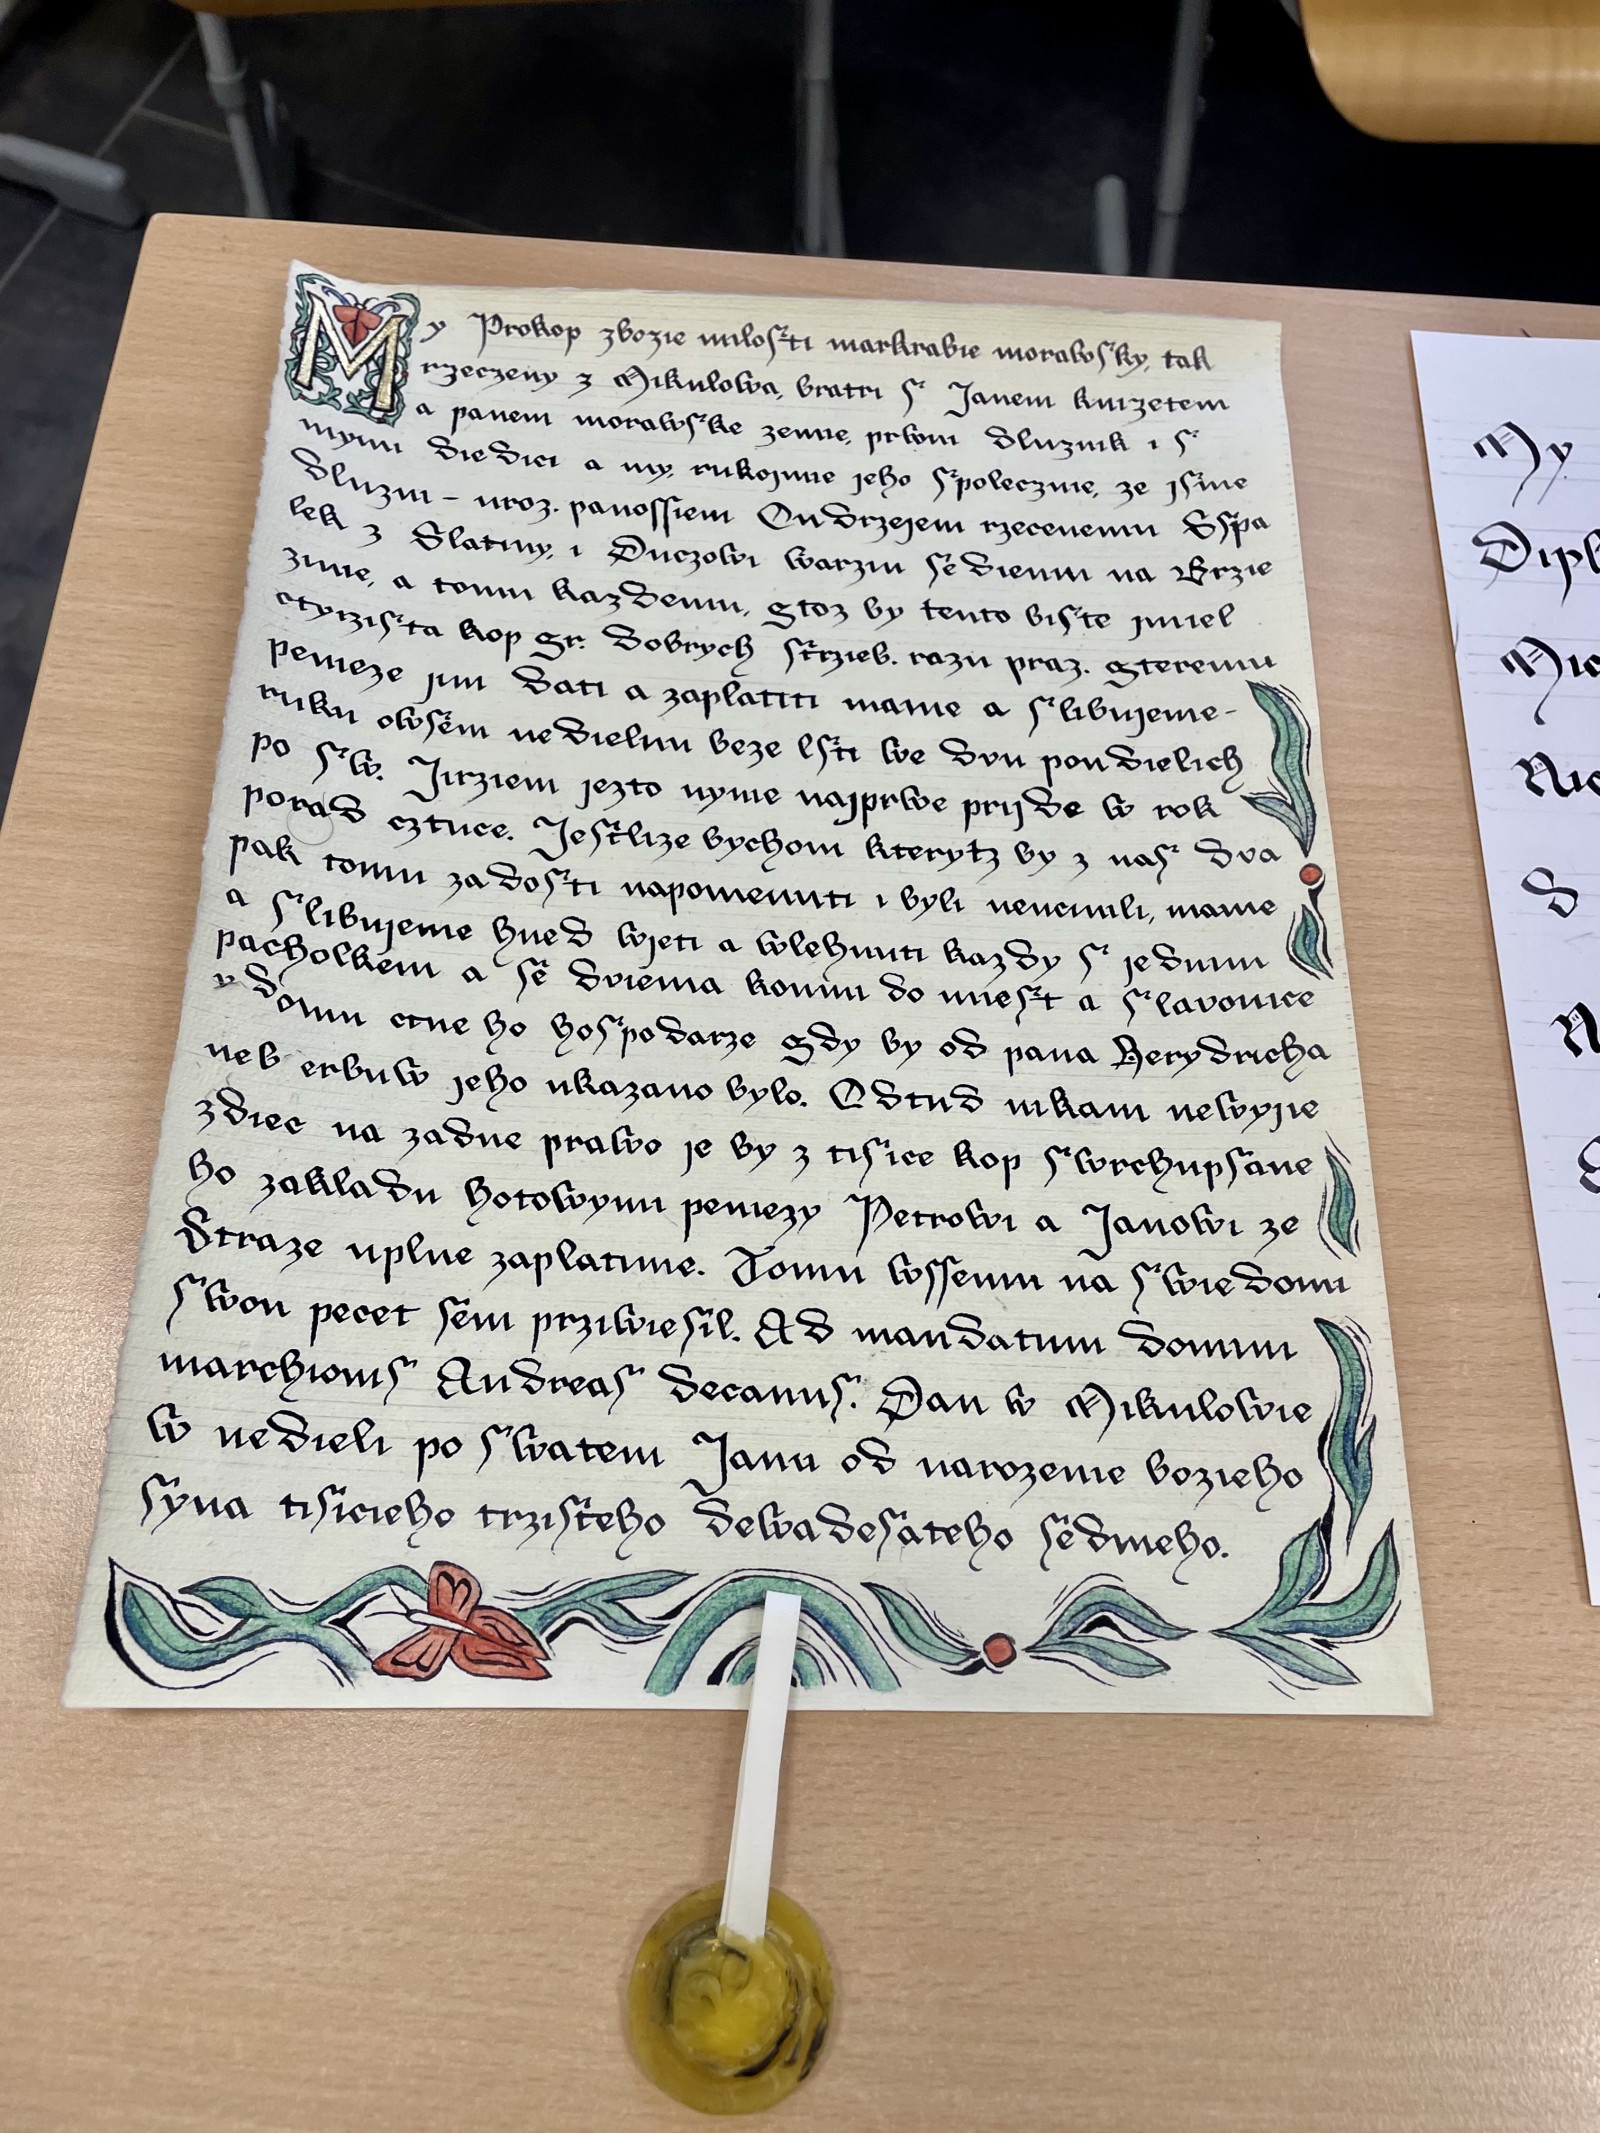 My Prokop zbozie milosti markrabie morawsky, tak
rzeczeny z Mikulowa, bratri s Janem knizetem
a panem morawske zemie, prwni dluznik i s
nymi diedici a my, rukojmie jeho spolecznie, ze jsme
dluzni - uroz. panossiem Ondrzejem rzecenemu Sspa
lek z Slatiny, i Duczowi warzin sedieniu na Brzie
znie, a tomu kazdemu, gtoz by tento liste jmiel
ctyrzista kop gr. dobrych strzieb. razu praz. gteremu
penieze jim dati a zaplatiti mame a slibujeme -
ruku owsem nedielnu beze lsti we dvu pondielich
po sw. Jirziem jezto nynie najprwe prijde w rok
porad cztuce. Jestlize bychom kterytz by z nas dva
pak tomu zadosti napomenuti i byli neucinili, mame
a slibujeme hned wjeti a wlehnuti kazdy s jednim
pacholkem a se dviema konmi do miest a slavonice
v domu ctneho hospodarze gdy by od pana Herydricha
neb erbuw jeho ukazano bylo. Odtud nikam newyjie
zdiec na zadne prawo je by z tisice kop swrchupsane
ho zakladu hotowymi peniezy Petrowi a Janowi ze
Straze uplne zaplatime. Tomu wssemu na swiedomi
swou pecet sem prziwiesil. Ad mandatum domini
marchionis Andreas decanus. Dan w Mikulowie
w nedieli po swatem Janu od narozenie bozieho
syna tisicieho trzisteho dewadesateho sedmeho.
My
Dipl
Mic
Nic
S
N